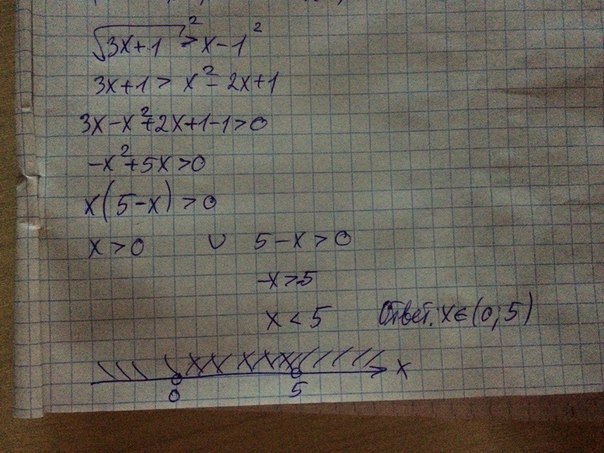 √3x+1² > x-1²
3x+1 > x²-2x+1
3x-x²+2x+1-1>0
-x²+5x>0
x(5-x)>0
x>0 ∪ 5-x>0
-x>5
x<5 Ответ: x∈(0,5)
x
0 5